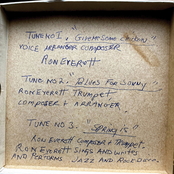 TUNE NO 1. "GIVE ME SOME
VOICE ARRANGER COMPOSER
RON EVERETT
TUNE NO 2. "BLUES FOR SONNY"
RON EVERETT TRUMPET
COMPOSER + ARRANGER.
TUNE NO 3. "SPRING IS"
RON EVERETT COMPOSER + TRUMPET.
RON EVERETT SINGS AND WRITES
AND PERFORMS JAZZ AND